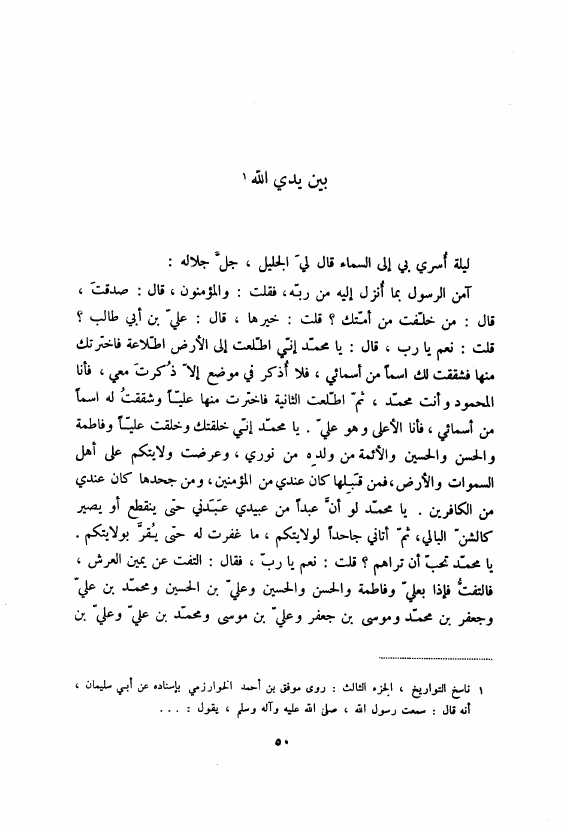 بين يدي الله ١
ليلة أُسري بي إلى السماء قال ليَ الجليل ، جلَّ جلاله :
آمن الرسول بما أُنزل إليه من ربّه، فقلت : والمؤمنون ، قال : صدقتَ ،
قال : من خلّفت من أمّتك ؟ قلت : خيرها ، قال : عليّ بن أبي طالب ؟
قلت : نعم يا رب ، قال : يا محمّد إنّي اطّلعت إلى الأرض اطّلاعة فاخترتك
منها فشققت لك اسماً من أسمائي ، فلا أُذكر في موضع إلاّ ذُكرتَ معي ، فأنا
المحمود وأنت محمّد ، ثمّ اطّلعت الثانية فاخترت منها عليّاً وشققتُ له اسماً
من أسمائي ، فأنا الأعلى وهو عليّ . يا محمّد إنّي خلقتك وخلقت عليّاً وفاطمة
والحسن والحسين والأئمة من ولده من نوري ، وعرضت ولايتكم على أهل
السموات والأرض، فمن قَبِلها كان عندي من المؤمنين، ومن جحدها كان عندي
من الكافرين . يا محمّد لو أنَّ عبداً من عبيدي عَبَدني حتّى ينقطع أو يصير
كالشنّ البالي، ثمّ أتاني جاحداً لولايتكم ، ما غفرت له حتّى يُقرَّ بولايتكم .
يا محمّد تحبّ أن تراهم ؟ قلت : نعم يا ربّ ، فقال : التفت عن يمين العرش ،
فالتفتُّ فإذا بعليّ وفاطمة والحسن والحسين وعليّ بن الحسين ومحمّد بن عليّ
وجعفر بن محمّد وموسى بن جعفر وعليّ بن موسى ومحمّد بن عليّ وعليّ بن
١ ناسخ التواريخ ، الجزء الثالث : روى موفق بن أحمد الخوارزمي بإسناده عن أبي سليمان ،
أنه قال : سمعت رسول الله ، صلى الله عليه وآله وسلم ، يقول : ...
٥٠